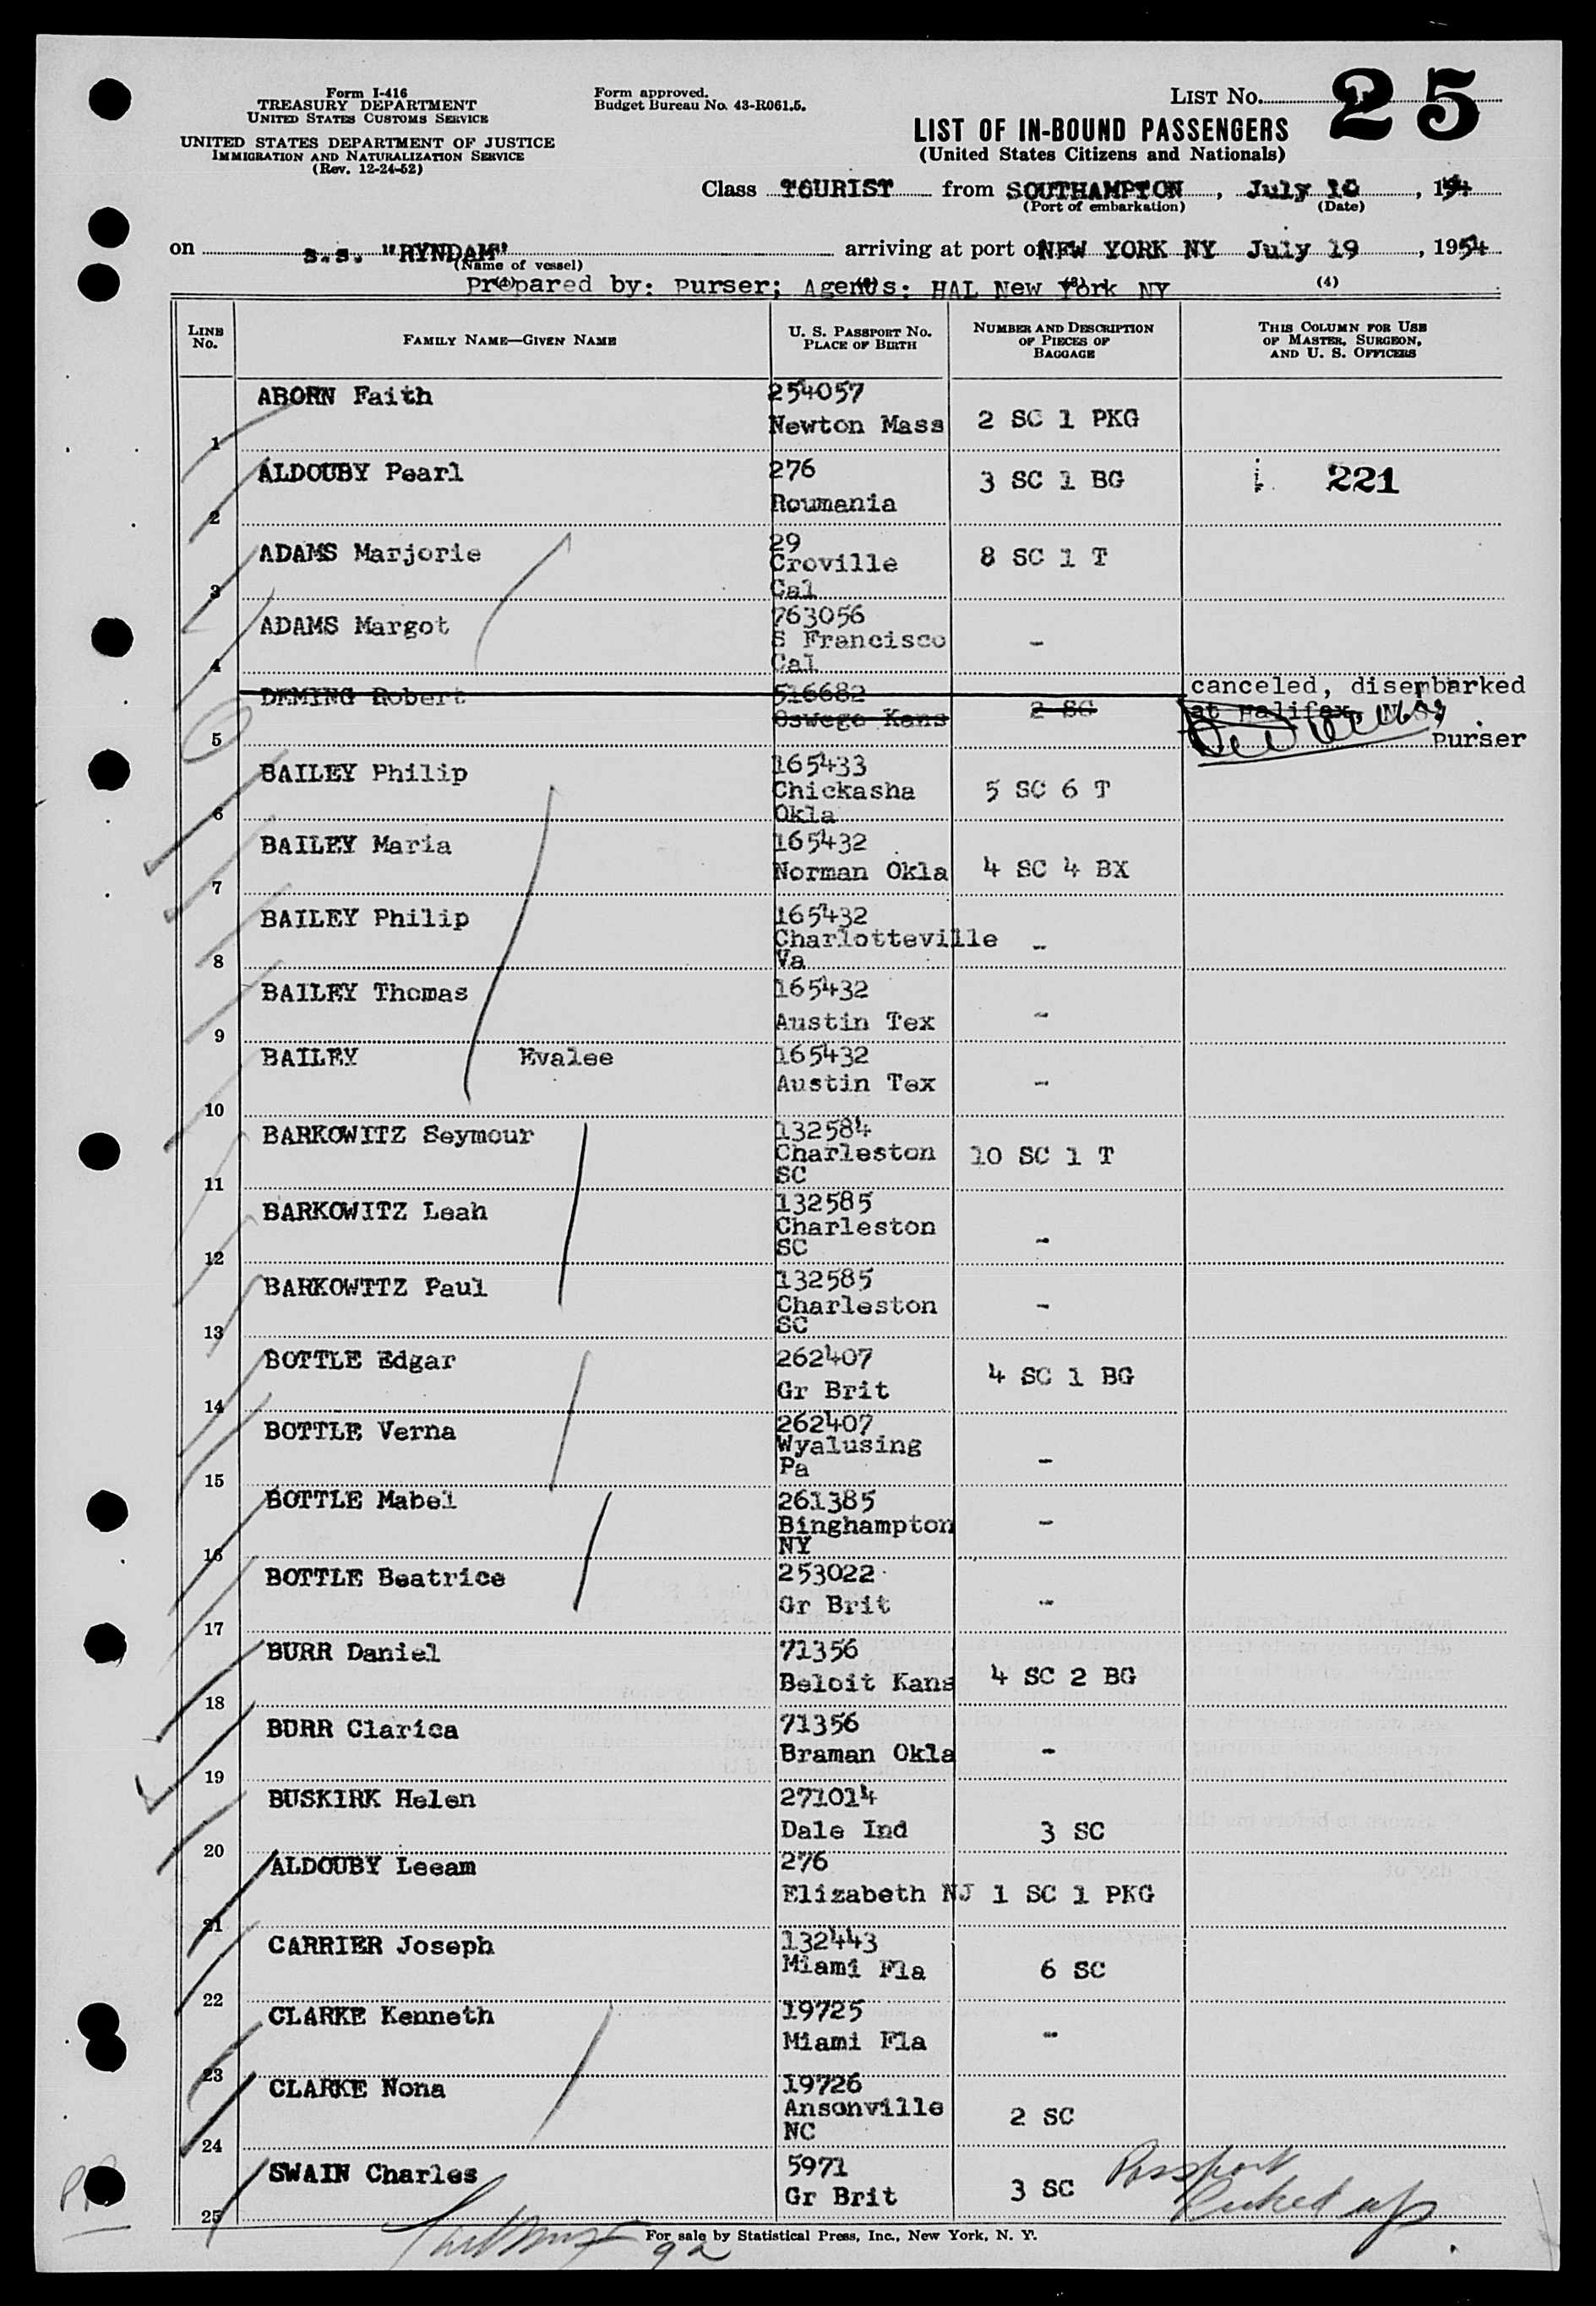 Form I-416
TREASURY DEPARTMENT
UNITED STATES CUSTOMS SERVICE
UNITED STATES DEPARTMENT OF JUSTICE
IMMIGRATION AND NATURALIZATION SERVICE
(Rev. 12-24-52)
Form approved.
Budget Bureau No. 43-R061.5.
LIST No. 25
LIST OF IN-BOUND PASSENGERS
(United States Citizens and Nationals)
Class TOURIST from SOUTHAMPTON, July 10, 19
(Port of embarkation) (Date)
on s.s. "RYNDAM" arriving at port of NEW YORK NY July 19, 1954
(Name of vessel)
Prepared by: Purser; Agents: HAL New York NY (4)
LINE No.
FAMILY NAME—GIVEN NAME
U. S. PASSPORT NO. PLACE OF BIRTH
NUMBER AND DESCRIPTION OF PIECES OF BAGGAGE
THIS COLUMN FOR USE OF MASTER, SURGEON, AND U. S. OFFICERS
1 ABORN Faith 254057 Newton Mass 2 SC 1 PKG
2 ALDOUBY Pearl 276 Roumania 3 SC 1 BG 221
3 ADAMS Marjorie 29 Croville Cal 8 SC 1 T
4 ADAMS Margot 763056 S Francisco Cal -
5 DEMING Robert 516682 Oswego Kans 2 SC canceled, disembarked at Halifax, N.S. Purser
6 BAILEY Philip 165433 Chickasha Okla 5 SC 6 T
7 BAILEY Maria 165432 Norman Okla 4 SC 4 BX
8 BAILEY Philip 165432 Charlotteville Va -
9 BAILEY Thomas 165432 Austin Tex -
10 BAILEY Evalee 165432 Austin Tex -
11 BARKOWITZ Seymour 132584 Charleston SC 10 SC 1 T
12 BARKOWITZ Leah 132585 Charleston SC -
13 BARKOWTTZ Paul 132585 Charleston SC -
14 BOTTLE Edgar 262407 Gr Brit 4 SC 1 BG
15 BOTTLE Verna 262407 Wyalusing Pa -
16 BOTTLE Mabel 261385 Binghampton NY -
17 BOTTLE Beatrice 253022 Gr Brit -
18 BURR Daniel 71356 Beloit Kans 4 SC 2 BG
19 BURR Clarica 71356 Braman Okla -
20 BUSKIRK Helen 271014 Dale Ind 3 SC
21 ALDOUBY Leeam 276 Elizabeth NJ 1 SC 1 PKG
22 CARRIER Joseph 132443 Miami Fla 6 SC
23 CLARKE Kenneth 19725 Miami Fla -
24 CLARKE Nona 19726 Ansonville NC 2 SC
25 SWAIN Charles 5971 Gr Brit 3 SC Passport Picked up
For sale by Statistical Press, Inc., New York, N. Y.
92